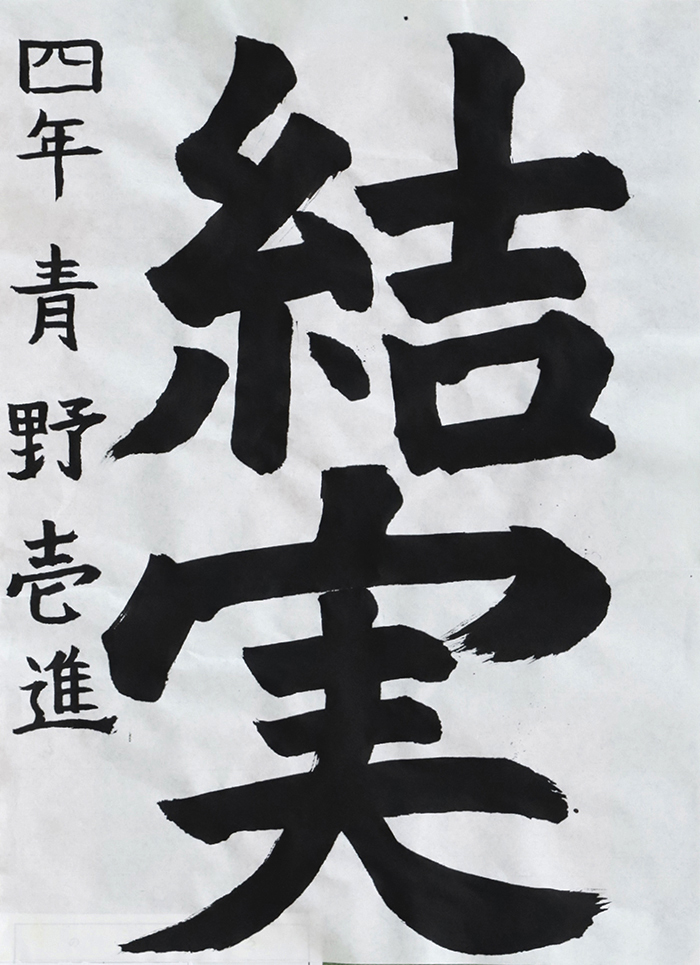 結実
四年 青野壱進